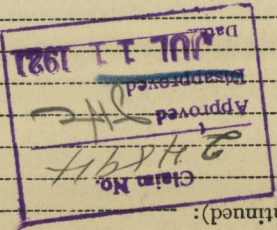 tinued):
Claim No.
Approved
Disapproved
Date JUL 11 1921